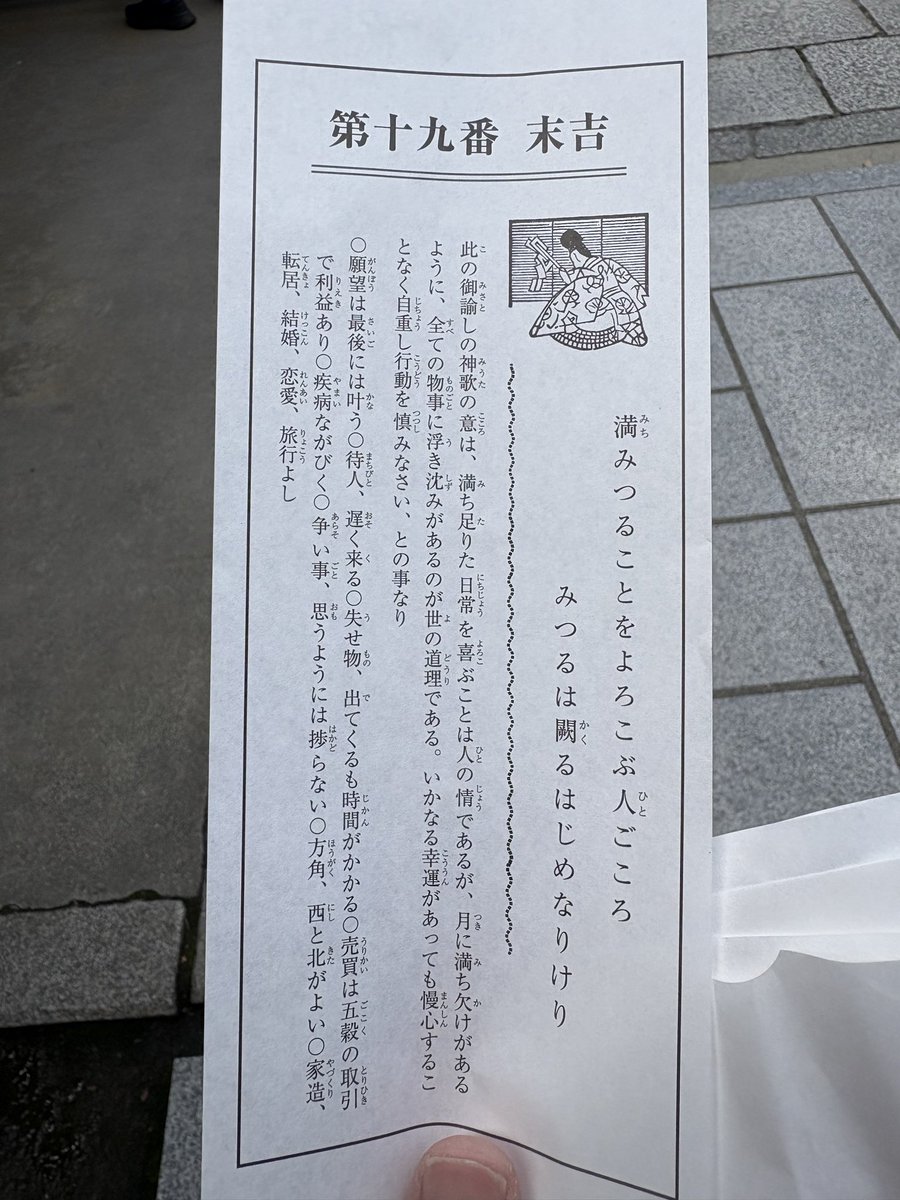 第十九番 末吉
満みつることをよろこぶ人ごころ
みつるは闕るはじめなりけり
此の御諭しの神歌の意は、満ち足りた日常を喜ぶことは人の情であるが、月に満ち欠けがある
ように、全ての物事に浮き沈みがあるのが世の道理である。いかなる幸運があっても慢心するこ
となく自重し行動を慎みなさい、との事なり
○願望は最後には叶う○待人、遅く来る○失せ物、出てくるも時間がかかる○売買は五穀の取引
で利益あり○疾病ながびく○争い事、思うようには捗らない○方角、西と北がよい○家造、
転居、結婚、恋愛、旅行よし